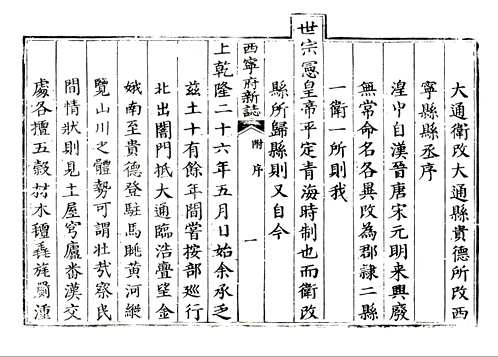 大通衛改大通縣貴德所改西
寧縣縣丞序
湟中自漢晉唐宋元明來興廢
無常命名各異改為郡隸二縣
一衛一所則我
世宗憲皇帝平定青海時制也而衛改
縣所歸縣則又自今
西寧府新誌
附序
一
上乾隆二十六年五月日始余承乏
茲土十有餘年間嘗按部巡行
北出闇門抵大通臨浩亹望金
娥南至貴德登駐馬眺黃河縱
覽山川之體勢可謂壯哉察民
間情狀則見土屋穹廬番漢交
處各擅五穀材木氊毳旄罽湩